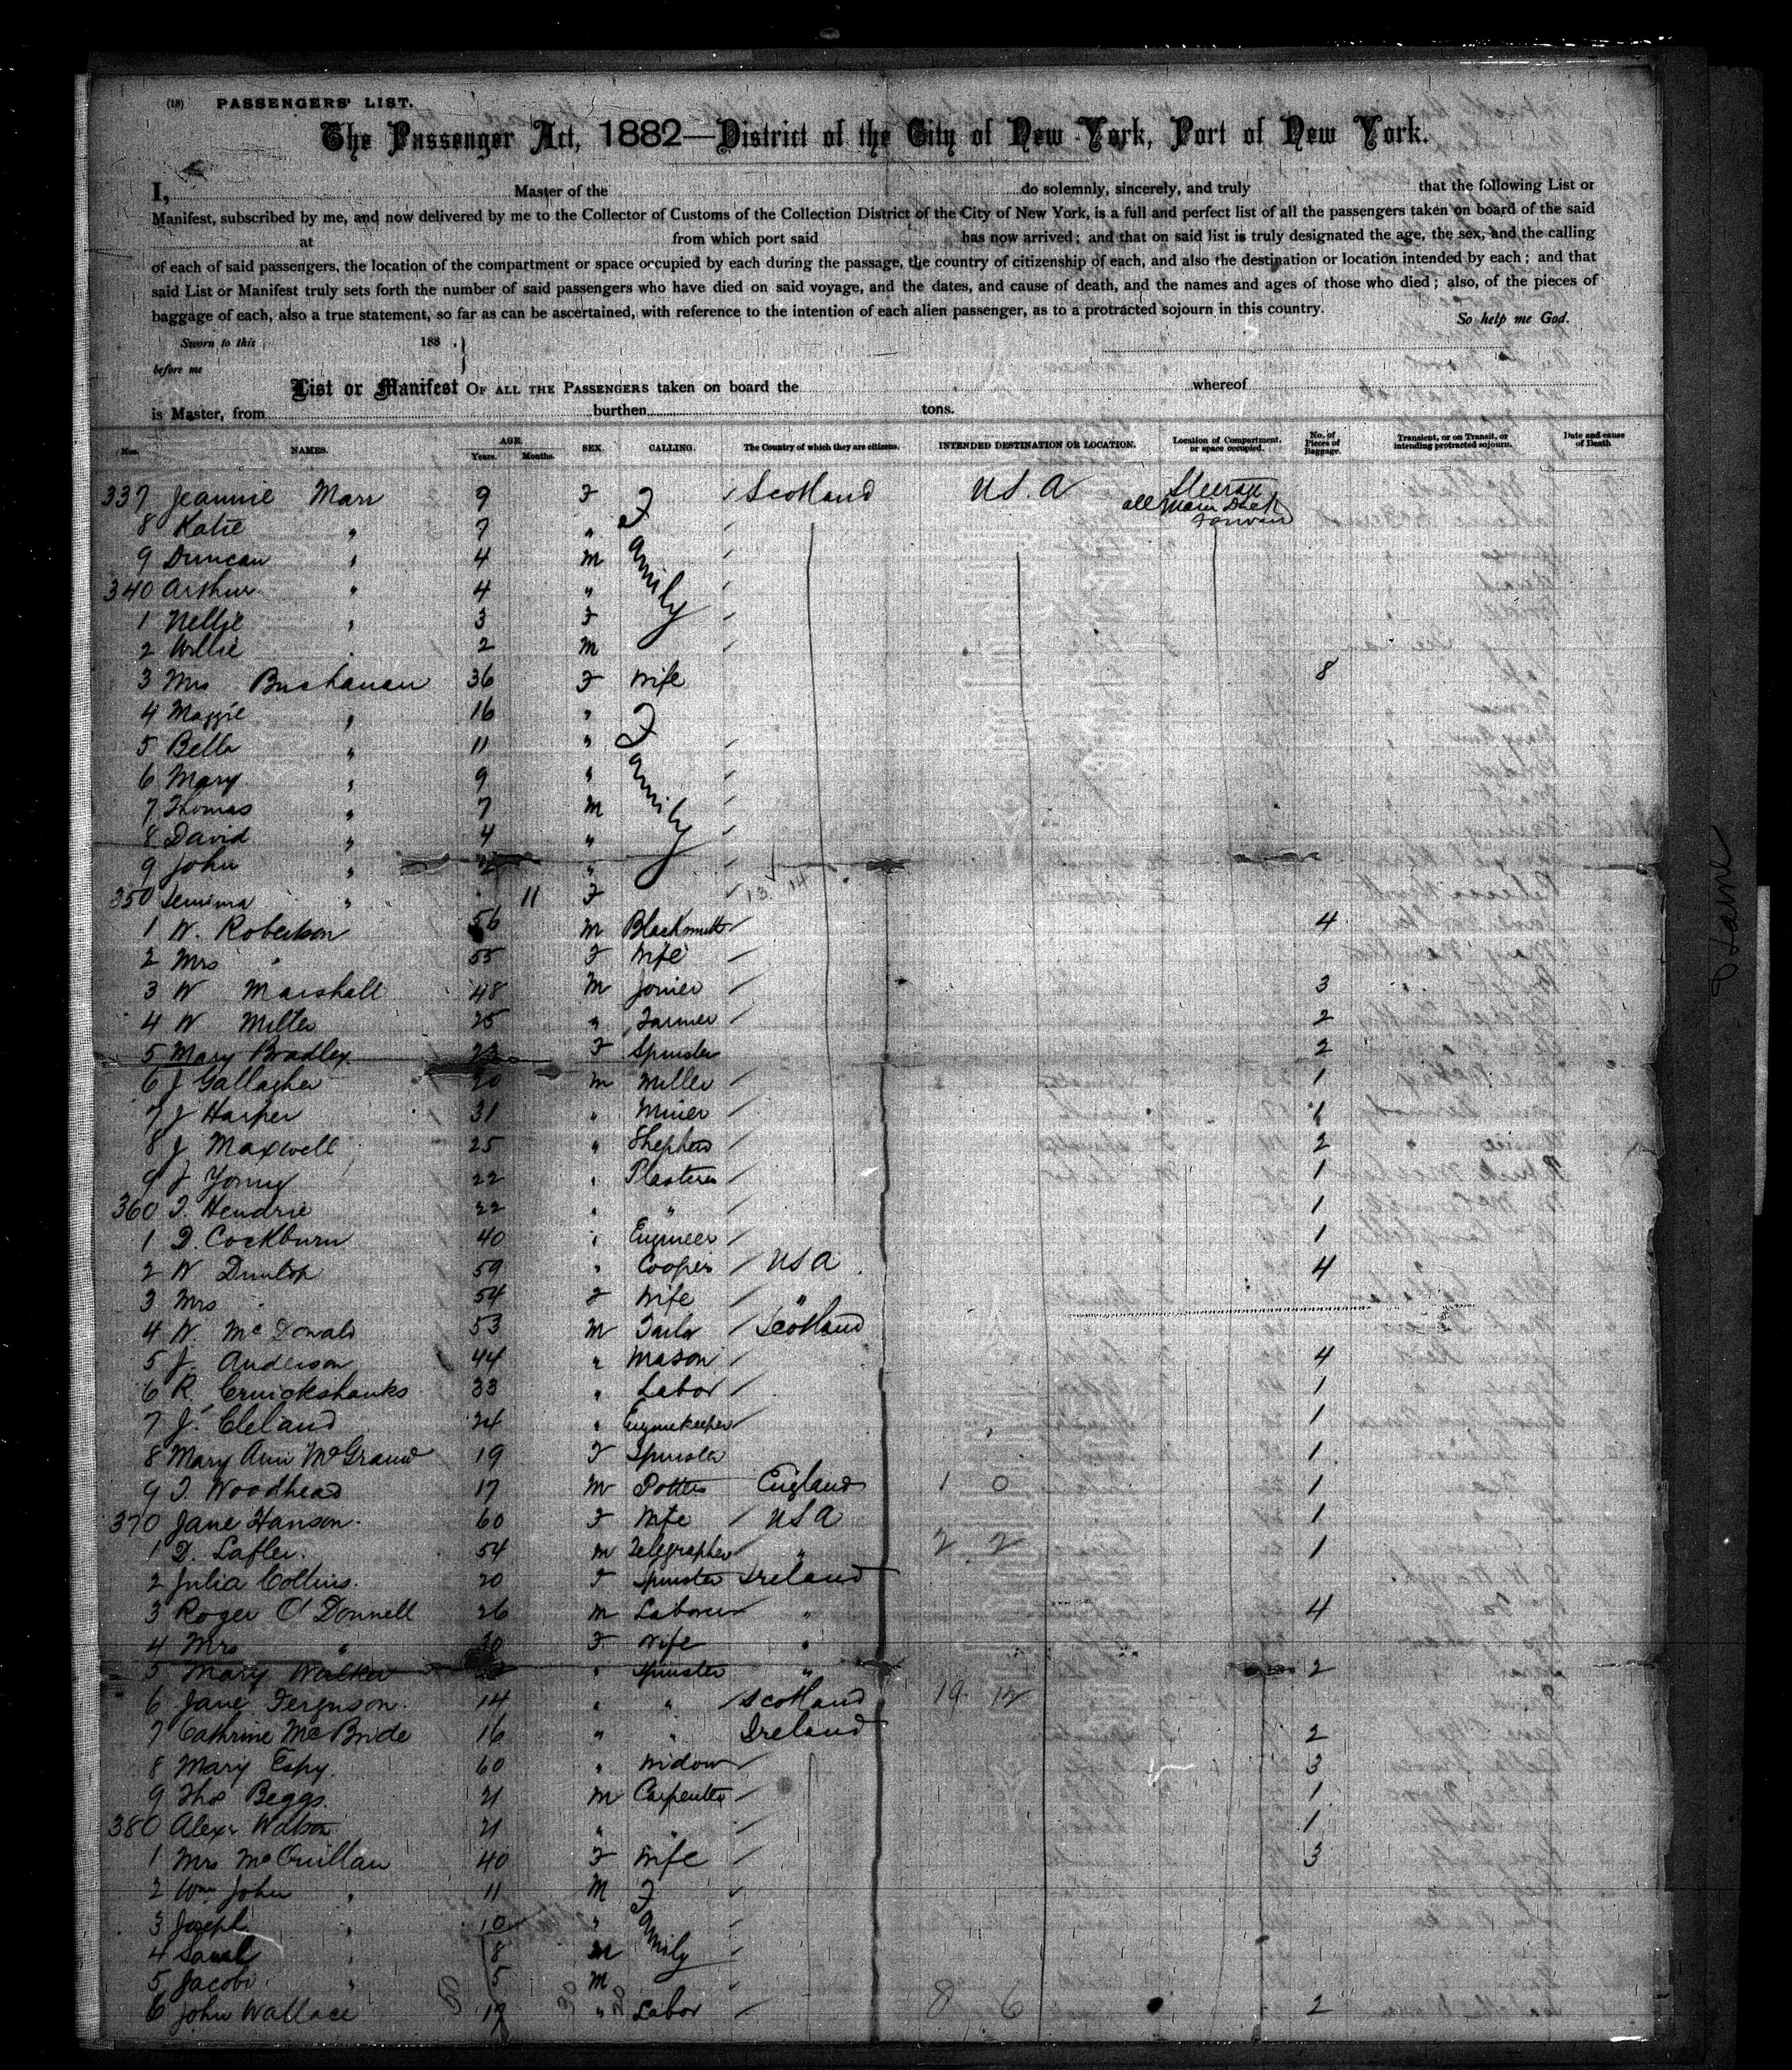 (18) PASSENGERS' LIST.
The Passenger Act, 1882—District of the City of New York, Port of New York.
I, Master of the do solemnly, sincerely, and truly that the following List or
Manifest, subscribed by me, and now delivered by me to the Collector of Customs of the Collection District of the City of New York, is a full and perfect list of all the passengers taken on board of the said
at from which port said has now arrived; and that on said list is truly designated the age, the sex, and the calling
of each of said passengers, the location of the compartment or space occupied by each during the passage, the country of citizenship of each, and also the destination or location intended by each; and that
said List or Manifest truly sets forth the number of said passengers who have died on said voyage, and the dates, and cause of death, and the names and ages of those who died; also, of the pieces of
baggage of each, also a true statement, so far as can be ascertained, with reference to the intention of each alien passenger, as to a protracted sojourn in this country. So help me God.
Sworn to this 188 .
before me
List or Manifest OF ALL THE PASSENGERS taken on board the whereof
is Master, from burthen tons.
Nos. NAMES. AGE. Years. Months. SEX. CALLING. The Country of which they are citizens. INTENDED DESTINATION OR LOCATION. Location of Compartment, or space occupied. No. of Pieces of Baggage. Transient, or on Transit, or intending protracted sojourn. Date and cause of Death
337 Jeannie Marr 9 F Family Scotland U.S.A Steerage
8 Katie " 7 " all Main Deck
9 Duncan " 4 M
340 Arthur " 4 "
1 Nellie " 3 F
2 Willie " 2 M
3 Mrs Buchanan 36 F Wife 8
4 Maggie " 16 " Family
5 Bella " 11 "
6 Mary " 9 "
7 Thomas " 7 M
8 David " 4 "
9 John " "
350 Jemima " 11 F
1 W. Robertson 56 M Blacksmith 4
2 Mrs " 55 F Wife
3 W Marshall 48 M Joiner 3
4 W 25 " Farmer 2
5 Mary Bradley F Spinster 2
6 J Gallagher 20 M Miller 1
7 J Harper 31 " Miner 1
8 J Maxwell 25 " Shepherd 2
9 J Young 22 " Plasterer 1
360 T. Hendrie 22 " " 1
1 D. Cockburn 40 " Engineer 1
2 W Dunlop 59 " Cooper USA 4
3 Mrs " 54 F Wife "
4 W. McDonald 53 M Tailor Scotland
5 J. Anderson 44 " Mason 4
6 R. Cruickshanks 33 " Labor 1
7 J. Cleland 24 " Enginekeeper 1
8 Mary Ann 19 F Spinster 1
9 T. Woodhead 17 M Potter England 1 0 1
370 Jane Hanson 60 F Wife USA 1
1 D. Lafler 54 M Telegrapher " 2 2 1
2 Julia Collins. 20 F Spinster Ireland
3 Roger O'Donnell 26 M Laborer " 4
4 Mrs " 30 F Wife "
5 Mary Walker " Spinster " 2
6 Jane Ferguson. 14 " " Scotland 19 12
7 Cathrine McBride 16 " " Ireland 2
8 Mary Espy. 60 " Widow 3
9 Thos Beggs. 21 M Carpenter 1
380 Alexr Watson 21 " " 1
1 Mrs McQuillan 40 F Wife 3
2 Wm John " 11 M Family
3 Joseph " 10 "
4 " 8
5 Jacob " 5 M
6 John Wallace 19 " Labor 8 6 2